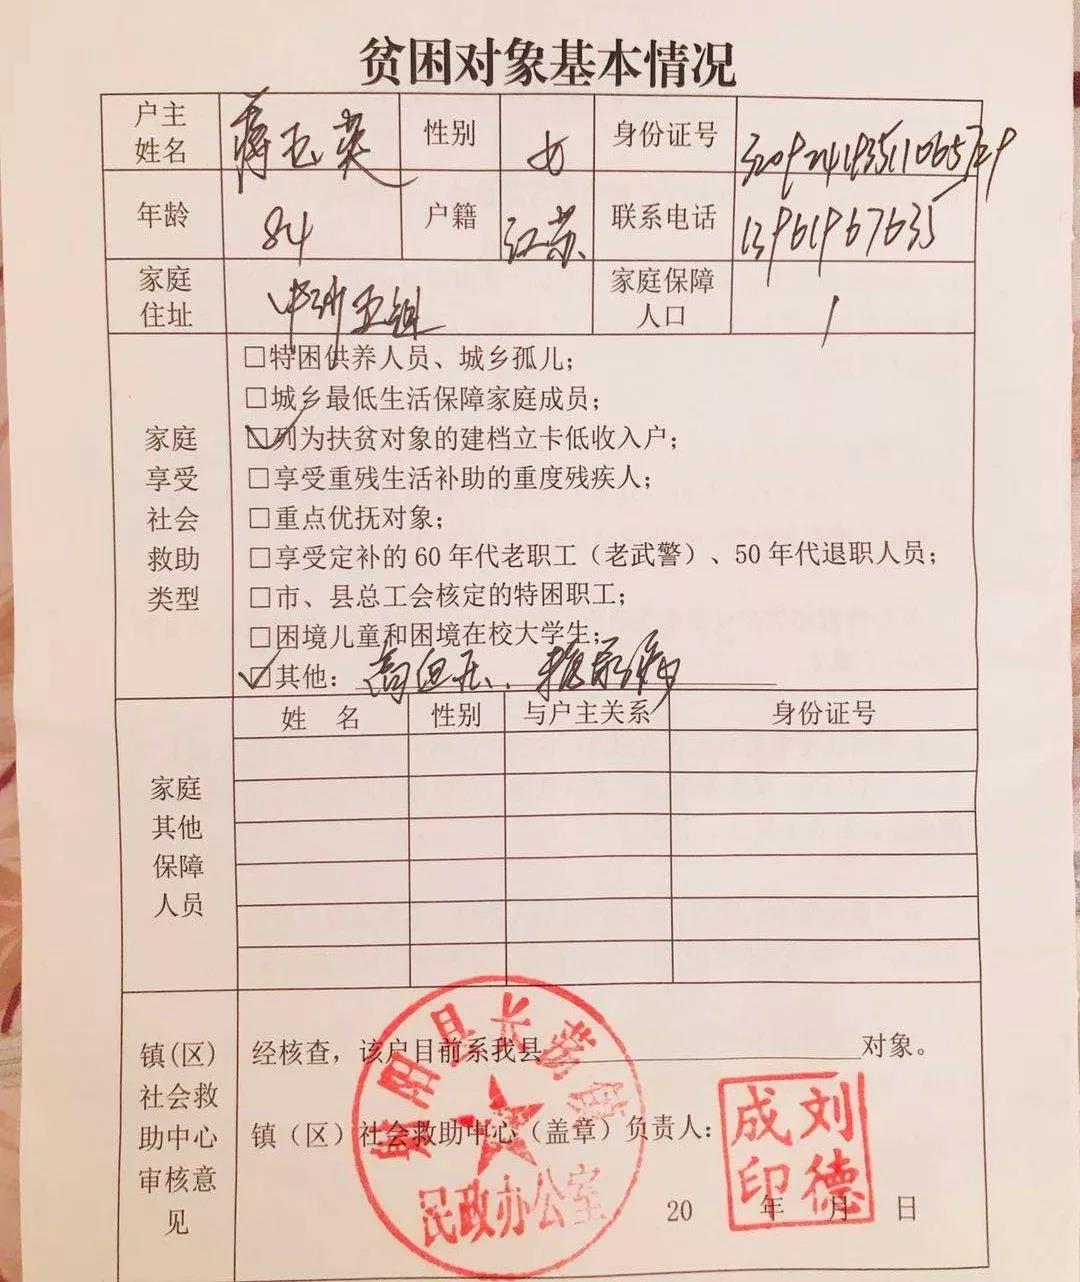 贫困对象基本情况
户主姓名 蒋玉英 性别 女 身份证号
年龄 84 户籍 江苏 联系电话 13961967635
家庭住址 五组 家庭保障人口 1
家庭享受社会救助类型
□特困供养人员、城乡孤儿；
□城乡最低生活保障家庭成员；
☑列为扶贫对象的建档立卡低收入户；
□享受重残生活补助的重度残疾人；
□重点优抚对象；
□享受定补的60年代老职工（老武警）、50年代退职人员；
□市、县总工会核定的特困职工；
□困境儿童和困境在校大学生；
☑其他：高血压、糖尿病
家庭其他保障人员
姓 名 性别 与户主关系 身份证号
镇(区)社会救助中心审核意见
经核查，该户目前系我县 对象。
镇（区）社会救助中心（盖章）负责人：
20 年 月 日
射阳县长荡镇
民政办公室
刘德成印